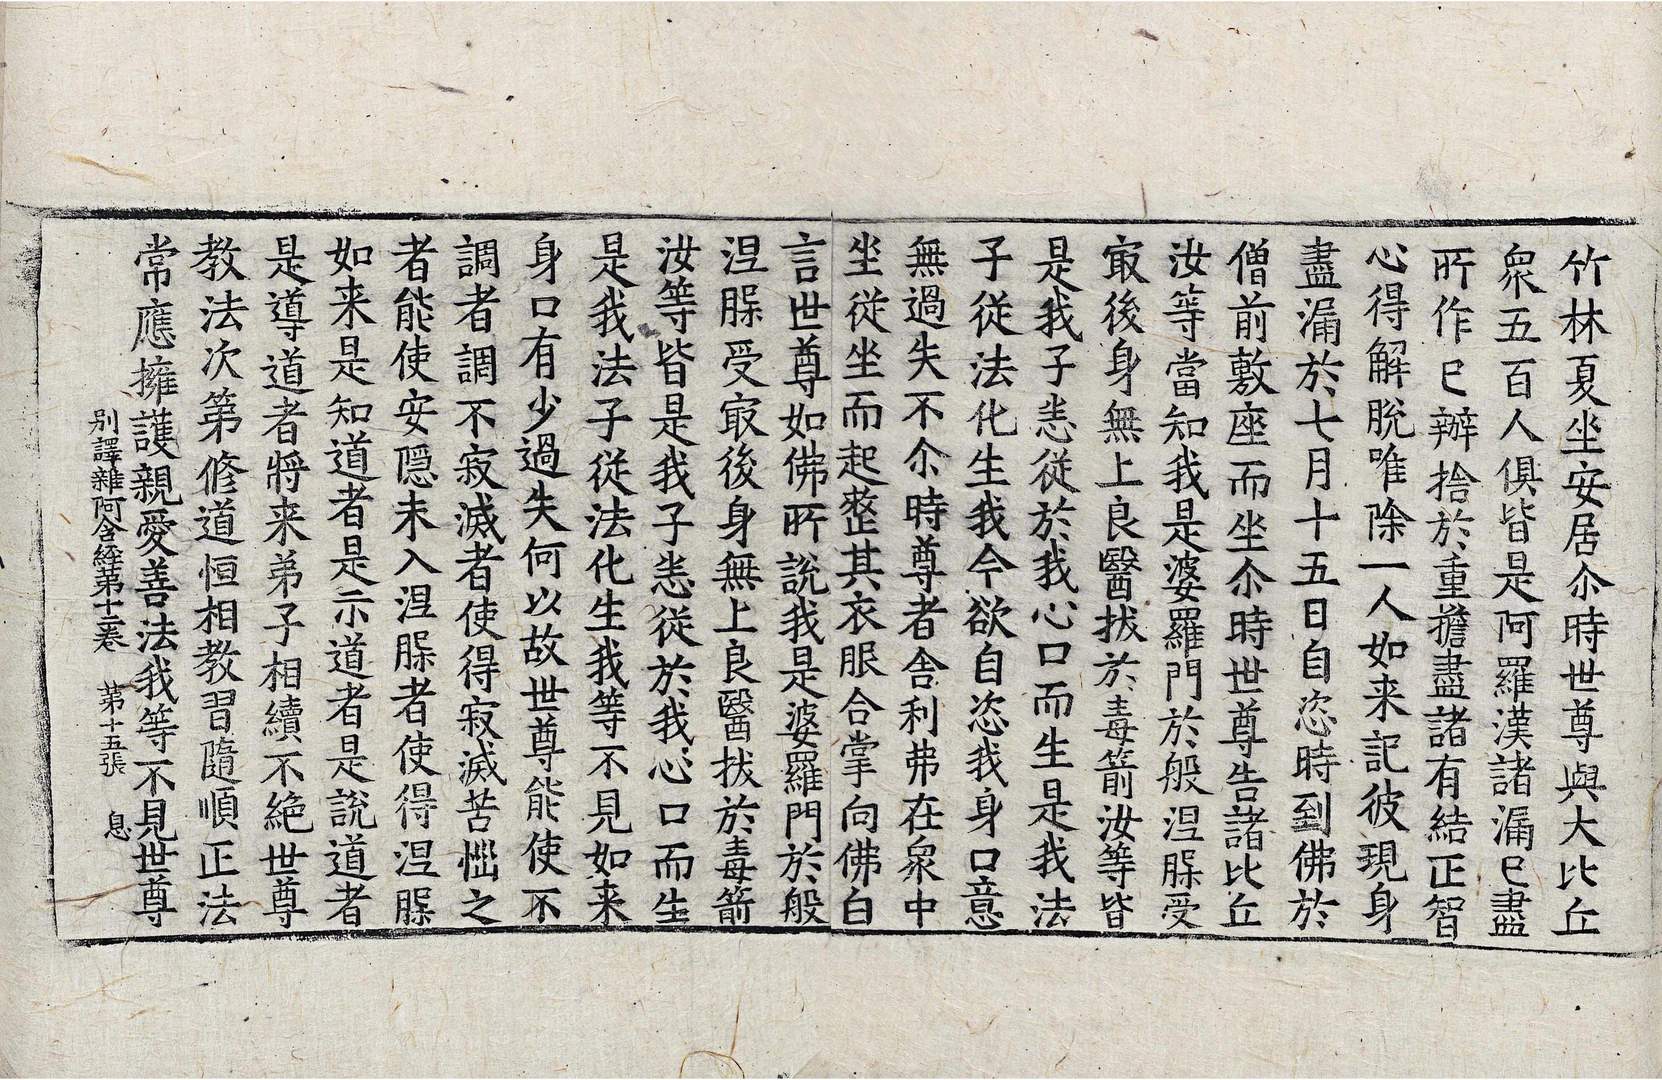 竹林夏坐安居尒時世尊與大比丘
衆五百人俱皆是阿羅漢諸漏已盡
所作已辦捨於重擔盡諸有結正智
心得解脫唯除一人如来記彼現身
盡漏於七月十五日自恣時到佛於
僧前敷座而坐尒時世尊告諸比丘
汝等當知我是婆羅門於般涅腬受
㝡後身無上良醫拔於毒箭汝等皆
是我子悉從於我心口而生是我法
子從法化生我今欲自恣我身口意
無過失不尒時尊者舍利弗在衆中
坐從坐而起整其衣服合掌向佛白
言世尊如佛所說我是婆羅門於般
涅腬受㝡後身無上良醫拔於毒箭
汝等皆是我子悉從於我心口而生
是我法子從法化生我等不見如来
身口有少過失何以故世尊能使不
調者調不寂滅者使得寂滅苦惱之
者能使安隱未入涅腬者使得涅腬
如来是知道者是示道者是說道者
是導道者將来弟子相續不絶世尊
教法次第修道恒相教習隨順正法
常應擁護親愛善法我等不見世尊
别譯雜阿含經第十二卷 第十五張 息